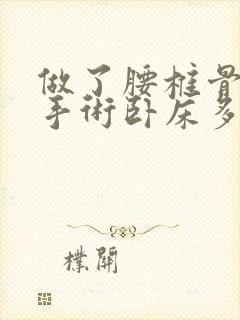 做了腰椎骨
手術卧床多
樸開